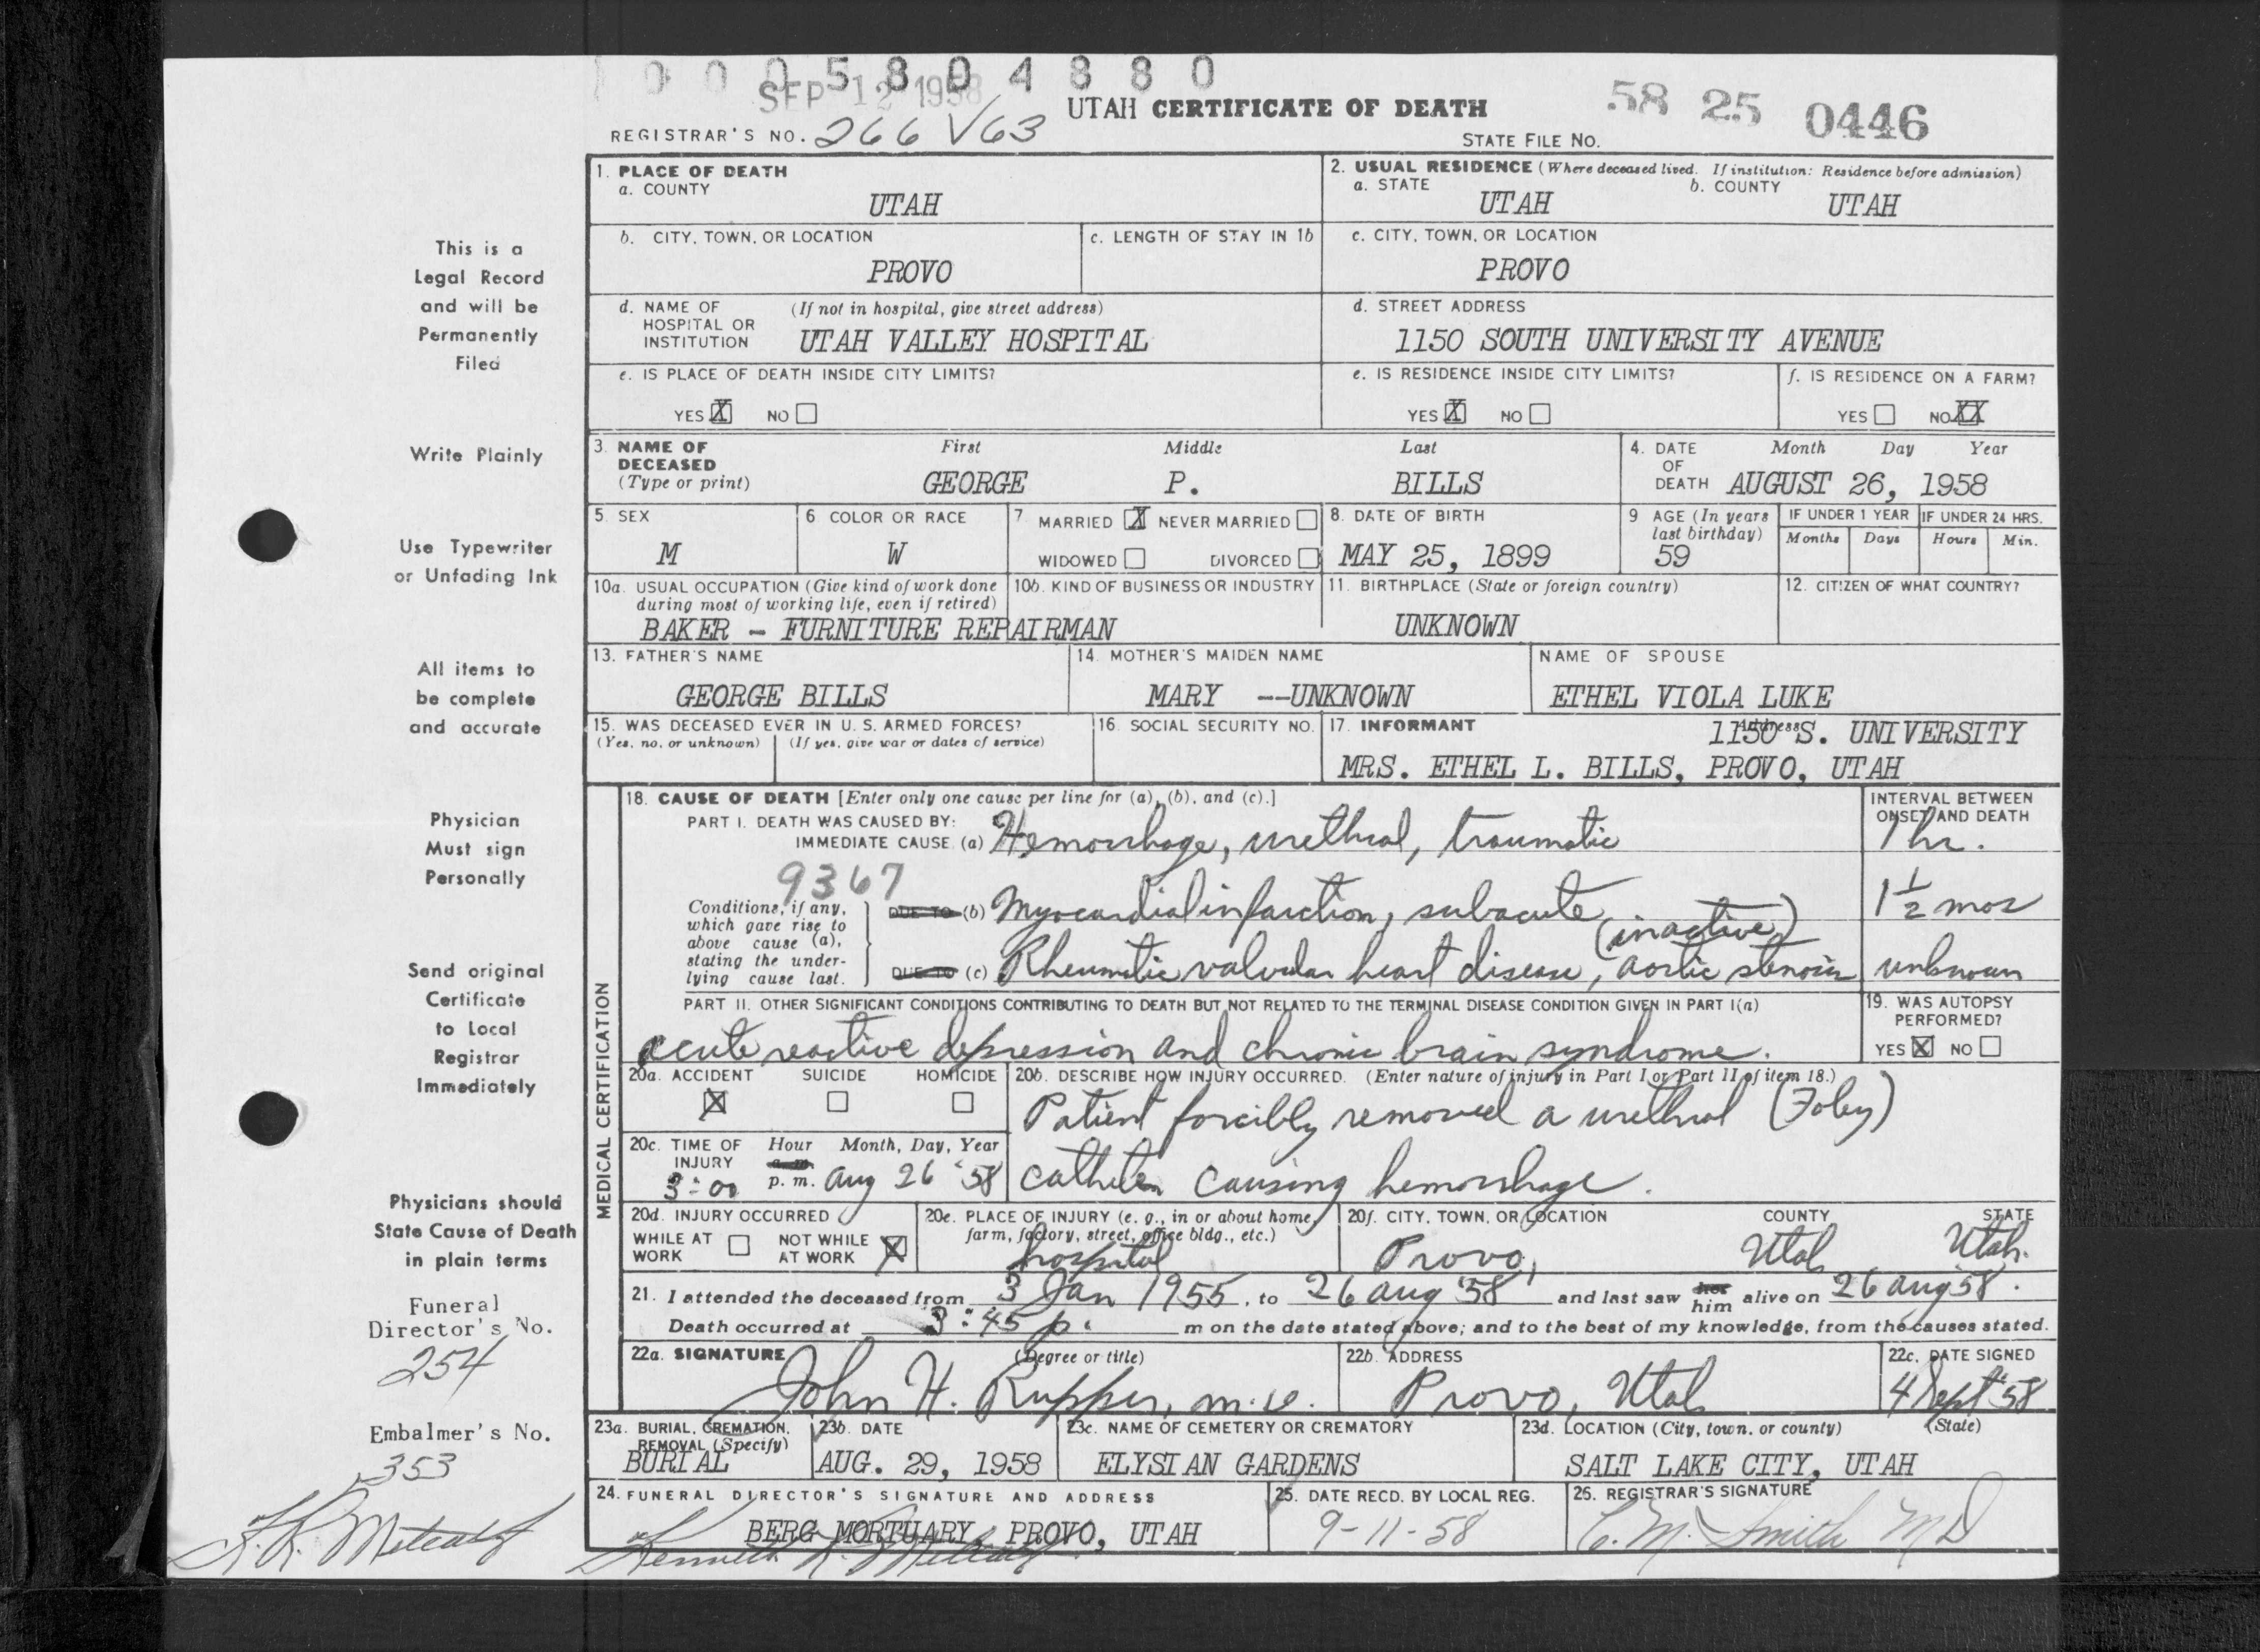 0 0 0 5 8 0 4 8 8 0
SEP 12 1958
UTAH CERTIFICATE OF DEATH
58 25 0446
REGISTRAR'S NO. 266 V63
STATE FILE NO.
1. PLACE OF DEATH
a. COUNTY
UTAH
2. USUAL RESIDENCE (Where deceased lived. If institution: Residence before admission)
a. STATE b. COUNTY
UTAH UTAH
b. CITY, TOWN, OR LOCATION
PROVO
c. LENGTH OF STAY IN 1b
c. CITY, TOWN, OR LOCATION
PROVO
d. NAME OF HOSPITAL OR INSTITUTION (If not in hospital, give street address)
UTAH VALLEY HOSPITAL
d. STREET ADDRESS
1150 SOUTH UNIVERSITY AVENUE
e. IS PLACE OF DEATH INSIDE CITY LIMITS?
YES X NO
e. IS RESIDENCE INSIDE CITY LIMITS?
YES X NO
f. IS RESIDENCE ON A FARM?
YES NO XX
3. NAME OF DECEASED (Type or print)
First Middle Last
GEORGE P. BILLS
4. DATE OF DEATH Month Day Year
AUGUST 26, 1958
5. SEX
M
6 COLOR OR RACE
W
7 MARRIED X NEVER MARRIED
WIDOWED DIVORCED
8. DATE OF BIRTH
MAY 25, 1899
9 AGE (In years last birthday)
59
IF UNDER 1 YEAR
Months Days
IF UNDER 24 HRS.
Hours Min.
10a. USUAL OCCUPATION (Give kind of work done during most of working life, even if retired)
10b. KIND OF BUSINESS OR INDUSTRY
BAKER - FURNITURE REPAIRMAN
11. BIRTHPLACE (State or foreign country)
UNKNOWN
12. CITIZEN OF WHAT COUNTRY?
13. FATHER'S NAME
GEORGE BILLS
14. MOTHER'S MAIDEN NAME
MARY --UNKNOWN
NAME OF SPOUSE
ETHEL VIOLA LUKE
15. WAS DECEASED EVER IN U. S. ARMED FORCES?
(Yes, no, or unknown) (If yes, give war or dates of service)
16. SOCIAL SECURITY NO.
17. INFORMANT Address
1150 S. UNIVERSITY
MRS. ETHEL L. BILLS, PROVO, UTAH
MEDICAL CERTIFICATION
18. CAUSE OF DEATH [Enter only one cause per line for (a), (b), and (c).]
INTERVAL BETWEEN ONSET AND DEATH
PART I. DEATH WAS CAUSED BY:
IMMEDIATE CAUSE (a) Hemorrhage, urethral, traumatic 1 hr.
9367
Conditions, if any, which gave rise to above cause (a), stating the underlying cause last.
DUE TO (b) Myocardial infarction, subacute 1 1/2 mos
(inactive)
DUE TO (c) Rheumatic valvular heart disease, aortic stenosis unknown
PART II. OTHER SIGNIFICANT CONDITIONS CONTRIBUTING TO DEATH BUT NOT RELATED TO THE TERMINAL DISEASE CONDITION GIVEN IN PART I(a)
acute reactive depression and chronic brain syndrome.
19. WAS AUTOPSY PERFORMED?
YES X NO
20a. ACCIDENT SUICIDE HOMICIDE
X
20b. DESCRIBE HOW INJURY OCCURRED. (Enter nature of injury in Part I or Part II of item 18.)
Patient forcibly removed a urethral (Foley)
catheter causing hemorrhage.
20c. TIME OF INJURY Hour Month, Day, Year
a. m.
3:00 p. m. Aug 26 '58
20d. INJURY OCCURRED
WHILE AT WORK NOT WHILE AT WORK X
20e. PLACE OF INJURY (e. g., in or about home, farm, factory, street, office bldg., etc.)
hospital
20f. CITY, TOWN, OR LOCATION COUNTY STATE
Provo, Utah Utah.
21. I attended the deceased from 3 Jan 1955, to 26 Aug '58 and last saw her him alive on 26 Aug 58.
Death occurred at 3:45 p. m on the date stated above; and to the best of my knowledge, from the causes stated.
22a. SIGNATURE (Degree or title)
John H. Rupper, M.D.
22b. ADDRESS
Provo, Utah
22c. DATE SIGNED
4 Sept '58
23a. BURIAL, CREMATION, REMOVAL (Specify)
BURIAL
23b. DATE
AUG. 29, 1958
23c. NAME OF CEMETERY OR CREMATORY
ELYSIAN GARDENS
23d. LOCATION (City, town, or county) (State)
SALT LAKE CITY, UTAH
24. FUNERAL DIRECTOR'S SIGNATURE AND ADDRESS
BERG MORTUARY, PROVO, UTAH
Kenneth R. Metcalf
25. DATE RECD. BY LOCAL REG.
9-11-58
26. REGISTRAR'S SIGNATURE
C. M. Smith MD
This is a
Legal Record
and will be
Permanently
Filed
Write Plainly
Use Typewriter
or Unfading Ink
All items to
be complete
and accurate
Physician
Must sign
Personally
Send original
Certificate
to Local
Registrar
Immediately
Physicians should
State Cause of Death
in plain terms
Funeral
Director's No.
254
Embalmer's No.
353
K. R. Metcalf